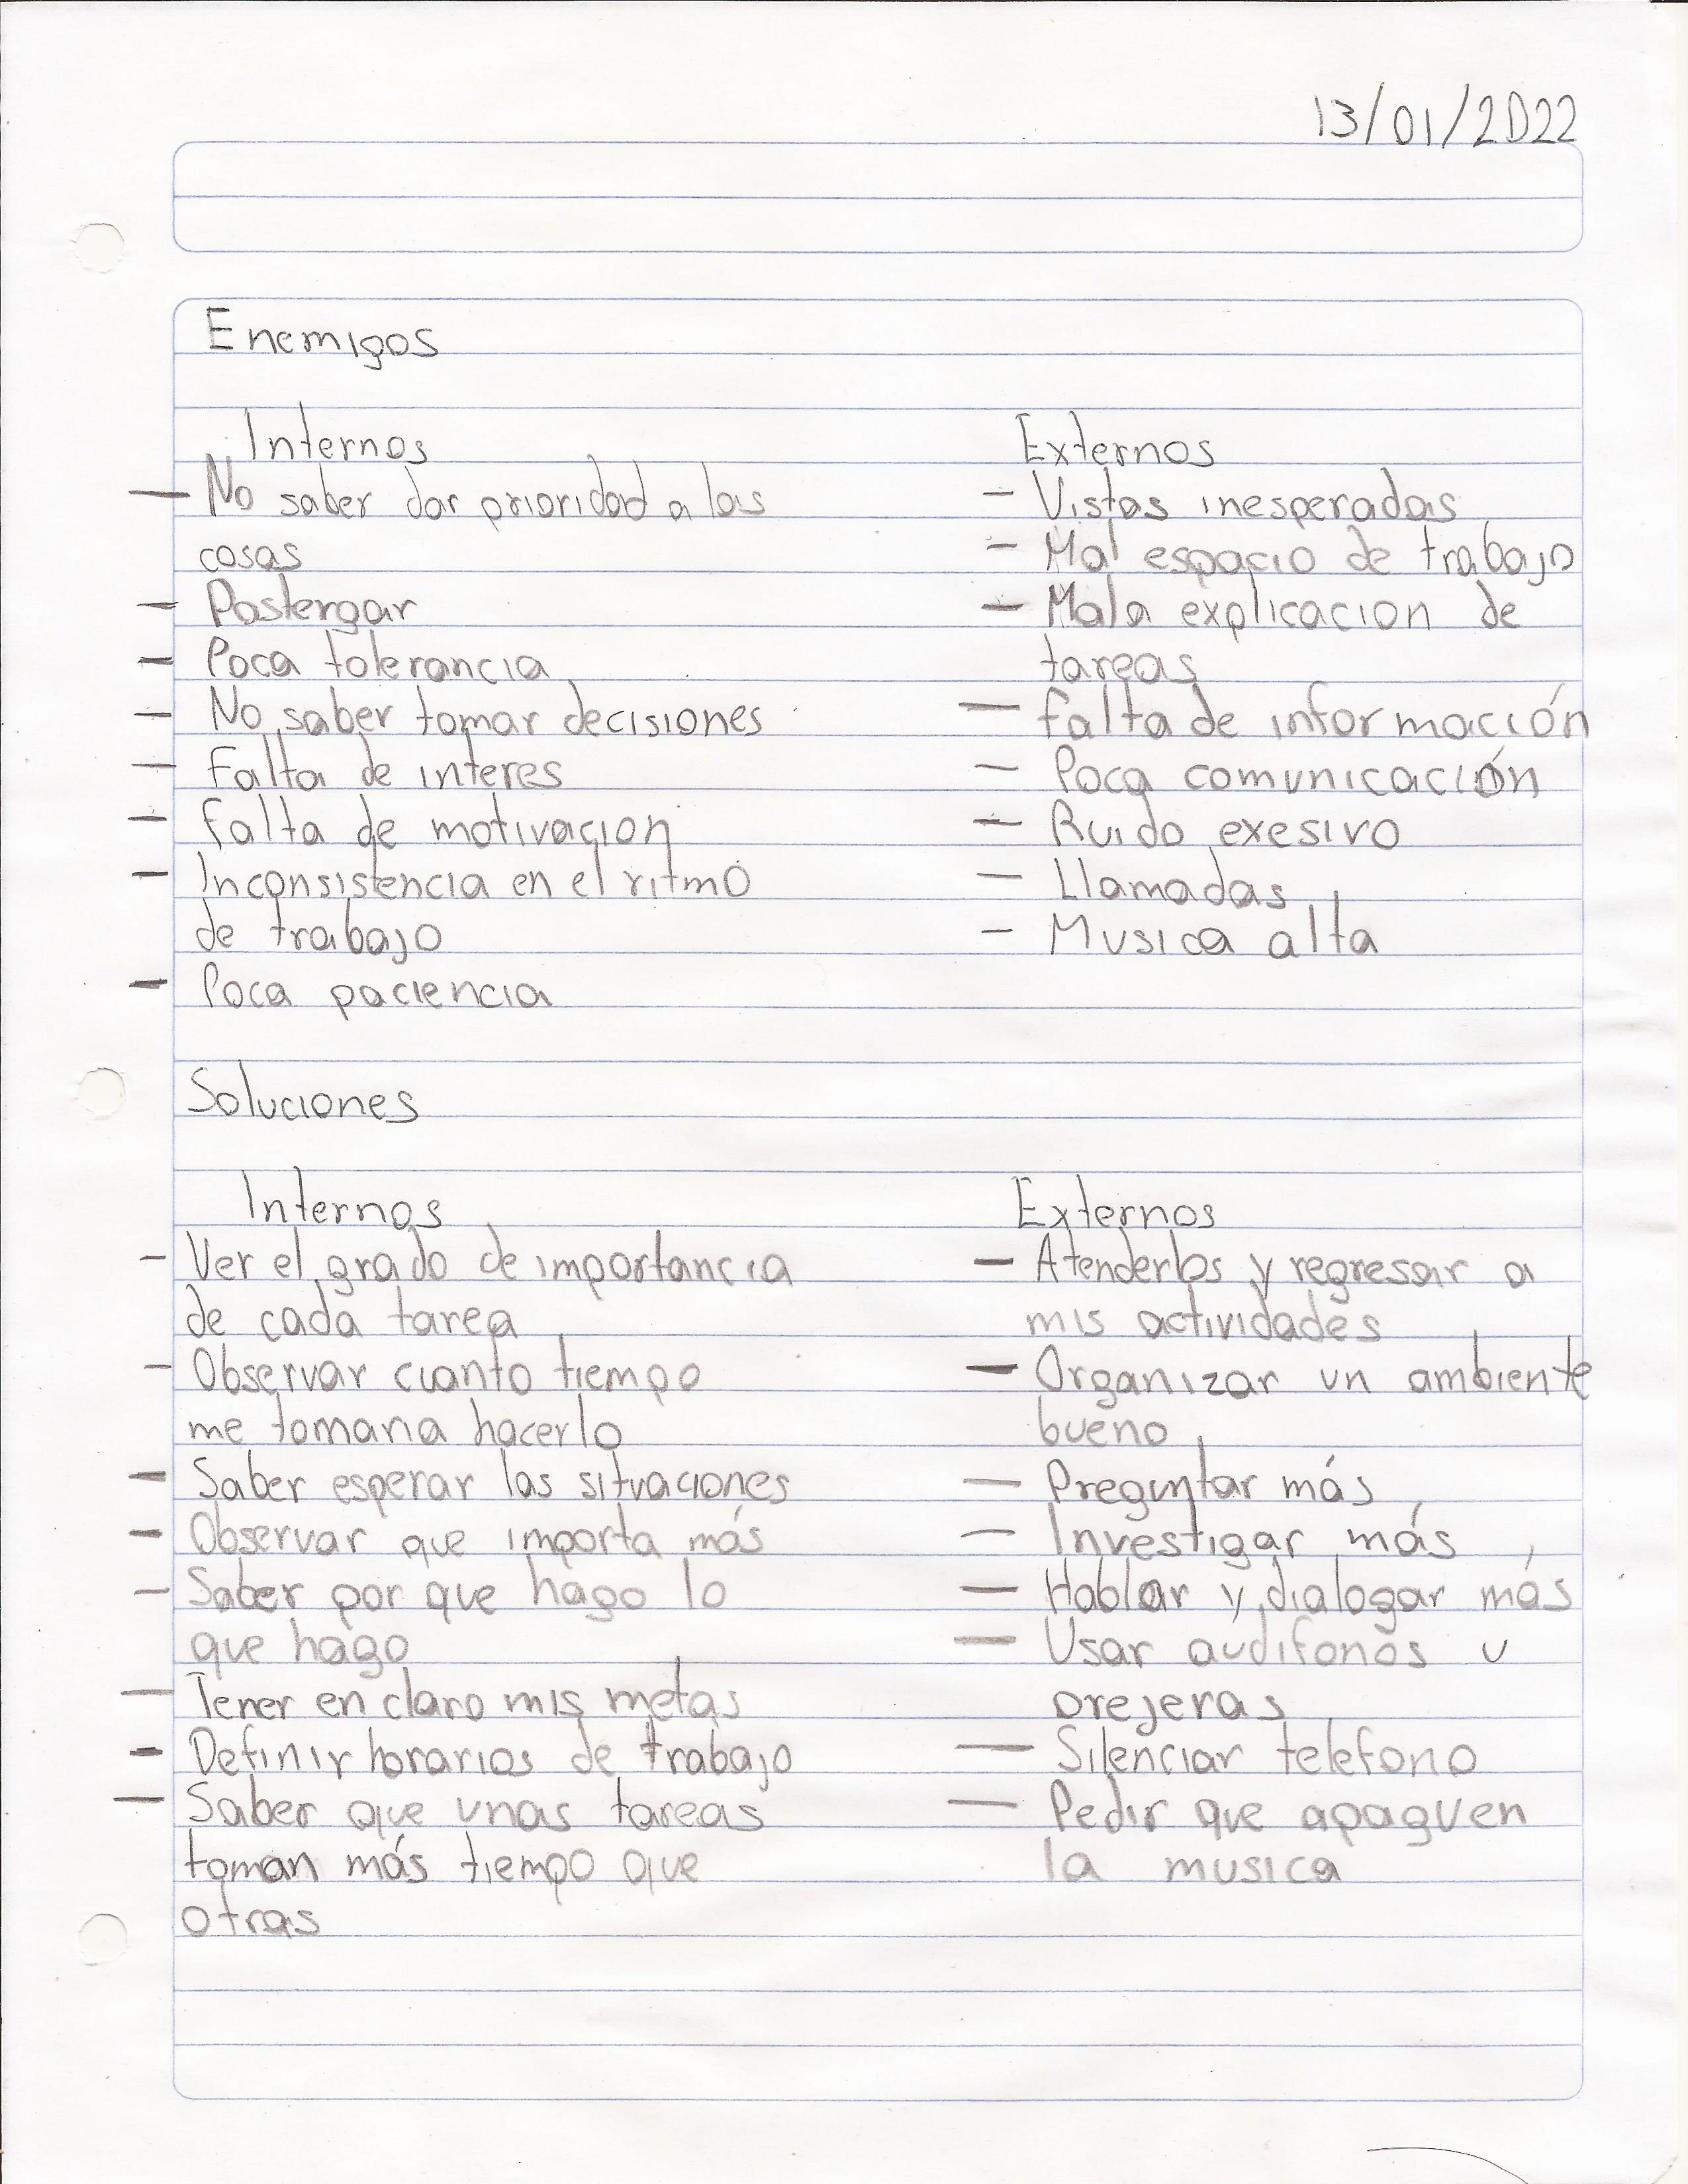 13/01/2022
Enemigos
Internos
— No saber dar prioridad a las
cosas
— Postergar
— Poca tolerancia
— No saber tomar decisiones
— Falta de interes
— falta de motivacion
— Inconsistencia en el ritmo
de trabajo
— Poca paciencia
Externos
— Vistas inesperadas
— Mal espacio de trabajo
— Mala explicacion de
tareas
— falta de información
— Poca comunicación
— Ruido exesivo
— Llamadas
— Musica alta
Soluciones
Internos
— Ver el grado de importancia
de cada tarea
— Observar cuanto tiempo
me tomaria hacerlo
— Saber esperar las situaciones
— Observar que importa más
— Saber por que hago lo
que hago
— Tener en claro mis metas
— Definir horarios de trabajo
— Saber que unas tareas
toman más tiempo que
otras
Externos
— Atenderlos y regresar a
mis actividades
— Organizar un ambiente
bueno
— Preguntar más
— Investigar más
— Hablar y dialogar más
— Usar audifonos u
orejeras
— Silenciar telefono
— Pedir que apaguen
la musica